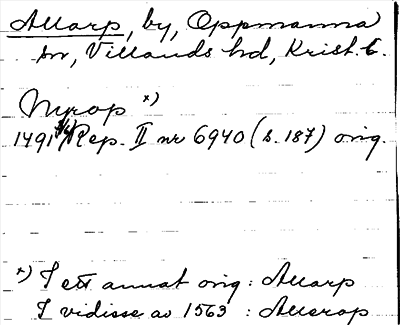 Allarp, by, Oppmanna
sn, Villands hd, Krist. l.
Myrop x)
1491 Rep. II nr 6940 (s. 187) orig.
x) I ett annat orig: Allarp
I vidisse av 1563 : Allerop